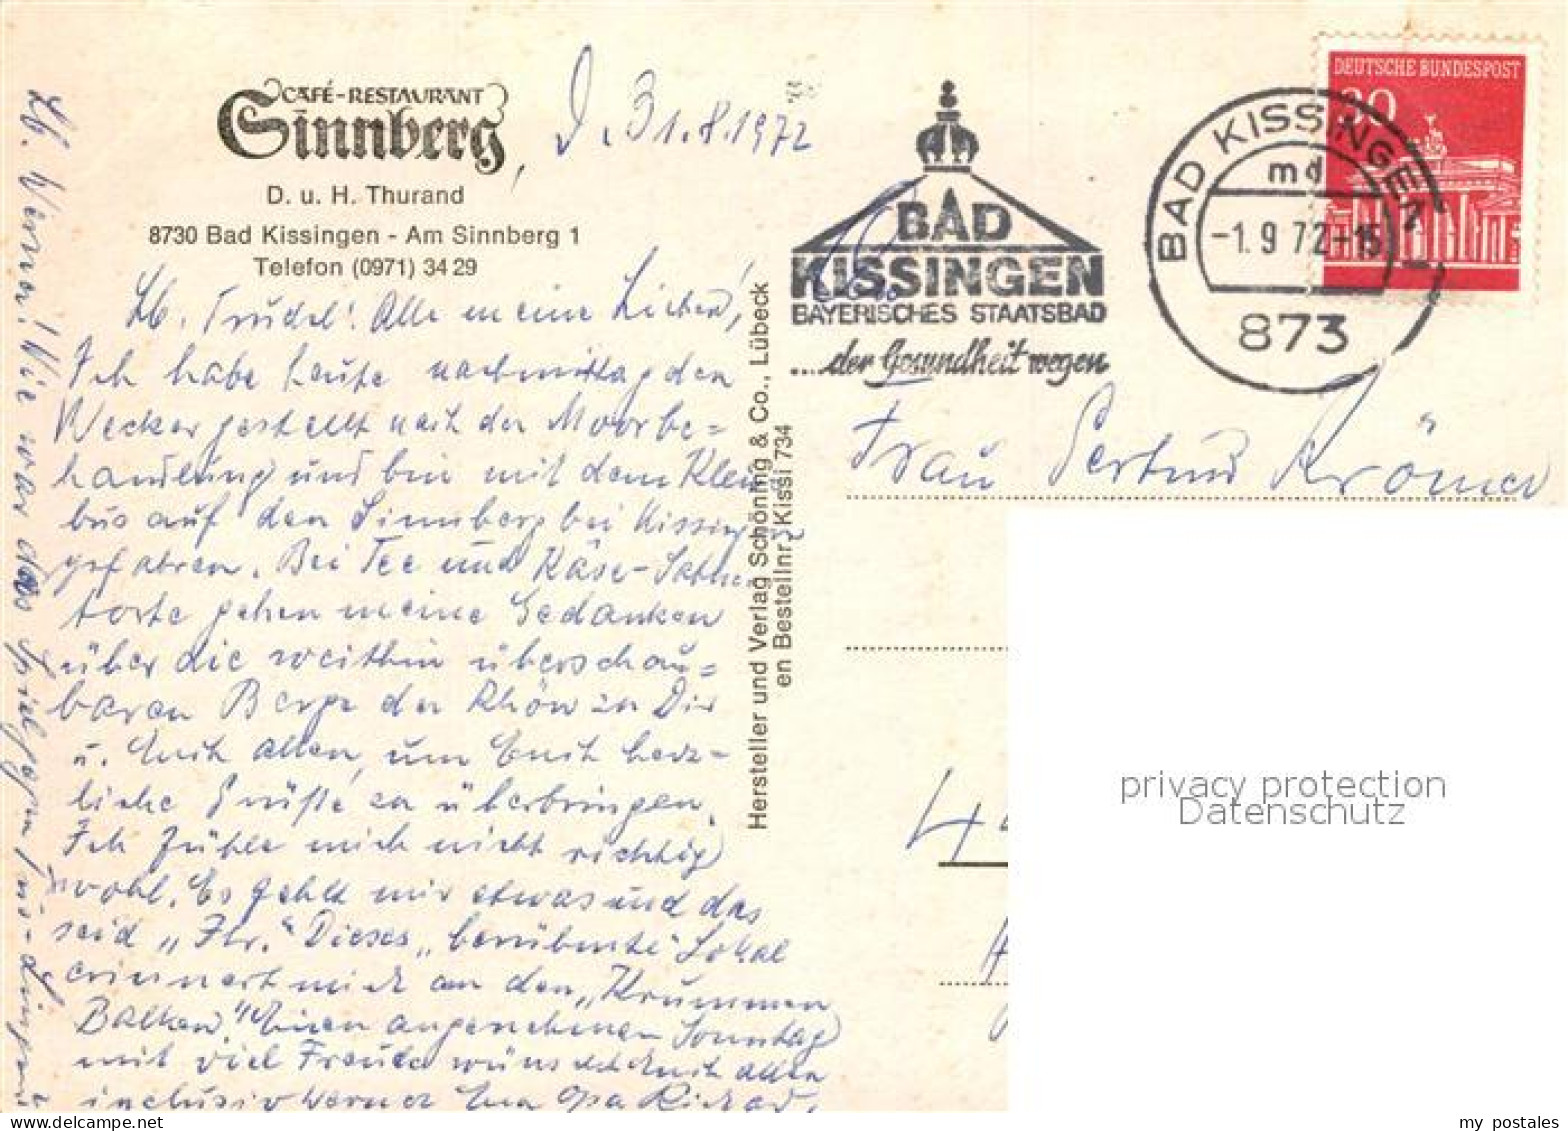 CAFÉ-RESTAURANT
Sinnberg
D. u. H. Thurand
8730 Bad Kissingen - Am Sinnberg 1
Telefon (0971) 34 29
D. 31.8.1972
Lb. Trudel! Alle meine Lieben!
Ich habe heute nachmittag den
Wecker gestellt nach der Moorbe=
handlung und bin mit dem Klein
bus auf den Sinnberg bei Kissing
gefahren. Bei Tee und Käse-Sahne
torte gehen meine Gedanken
über die weithin überschau=
baren Berge der Rhön zu Dir
u. Euch allen, um Euch herz-
liche Grüße zu überbringen.
Ich fühle mich nicht richtig
wohl. Es fehlt mir etwas und das
seid „Ihr." Dieses „berühmte" Lokal
erinnert mich an den „Krummen
Balken." Einen angenehmen Sonntag
mit viel Freude wünscht Euch allen
inclusiv Werner Euer Opa Richard.
Lb. Werner! Wie war das Spiel gegen
Hersteller und Verlag Schöning & Co., Lübeck
en Bestellnr. Kissi 734
BAD
KISSINGEN
BAYERISCHES STAATSBAD
...der Gesundheit wegen
BAD KISSINGEN 1
md
-1.9.72-15
873
DEUTSCHE BUNDESPOST
30
Frau Gertrud Krömer
4
privacy protection
Datenschutz
my postales